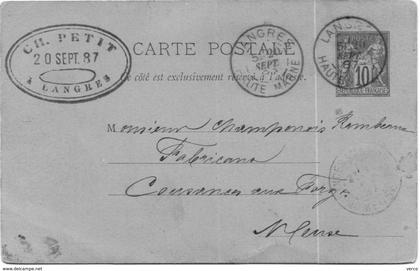 CH. PETIT
20 SEPT. 87
A LANGRES
CARTE POSTALE
Ce côté est exclusivement réservé à l'adresse.
LANGRES
SEPT.
HAUTE MARNE
LANGRES
HAUTE
10
Monsieur Champonois Rambeaux
Fabricant
Cousances aux Forges
Meuse
delcampe.net